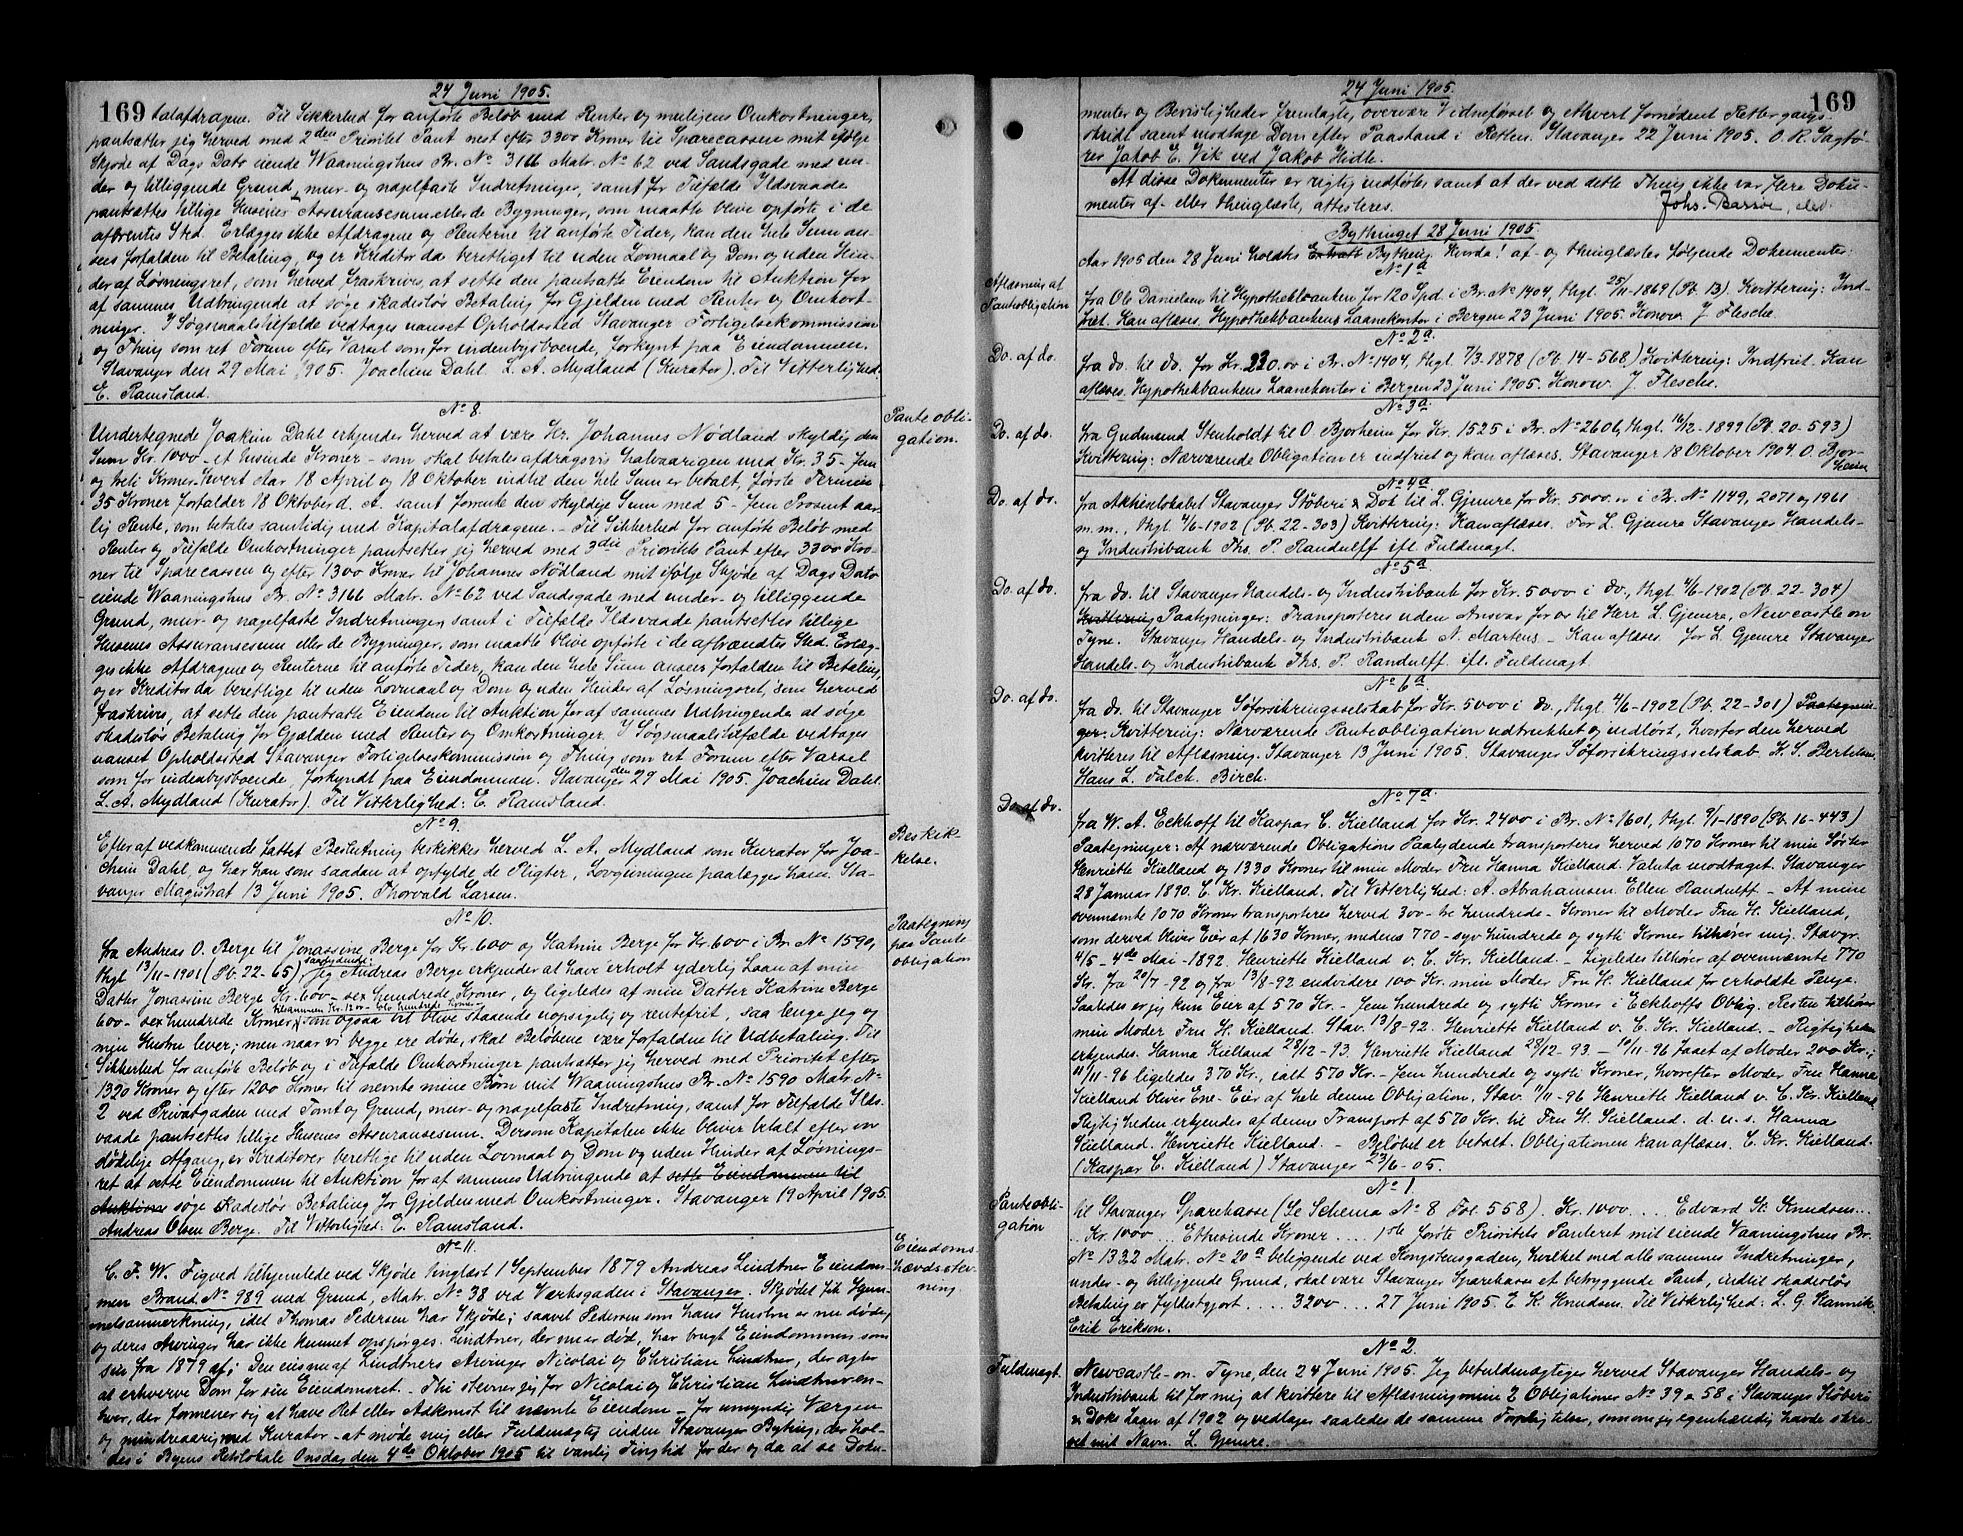 24 Juni 1905.
169
talafdragene. Til Sikkerhed for anførte Beløb med Renter og muligens Omkostninger,
pantsætter jeg herved med 2den Prioritet Pant næst efter 3300 Kroner til Sparecassen mit ifølge
Skjøde af Dags Dato eiende Vaaningshus Br. No 3166 Matr. No 62 ved Sandsgade med un-
der og tilliggende Grund, mur- og nagelfaste Indretninger, samt for Tilfælde Ildsvaade
pantsættes tillige Husenes Assurancesum eller de Bygninger, som maatte blive opførte i de
afbrendtes Sted. Erlægges ikke Afdragene og Renterne til anførte Tider, kan den hele Sum an-
sees forfalden til Betaling, og er Kreditor da berettiget til uden Lovmaal og Dom og uden Hin-
der af Løsningsret, som herved fraskrives, at sette den pantsatte Eiendom til Auktion for
af sammes Udbringende at søge skadesløs Betaling for Gjelden med Renter og Omkost-
ninger. I Søgsmaalstilfælde vedtages uanset Opholdssted Stavanger Forligelseskommission
og Thing som ret Forum efter Varsel som for indenbysboende, forkynt paa Eiendommen.
Stavanger den 29 Mai 1905. Joachim Dahl. L. A. Mydland (Kurator). Til Vitterlighed:
E. Ramsland.
No 8.
Pante obli-
gation.
Undertegnede Joakim Dahl erkjender herved at være Hr. Johannes Nödland skyldig den
Sum Kr. 1000 - et tusinde Kroner - som skal betales afdragsvis halvaarigen med Kr. 35 - fem
og treti Kroner hvert Aar 18 April og 18 Oktober indtil den hele Sum er betalt, første Termin
35 Kroner forfalder 18 Oktober d. A. samt forrente den skyldige Sum med 5 - fem Prosent aar-
lig Rente, som betales samtidig med Kapitalafdragene. - Til Sikkerhed for anførte Beløb med
Renter og Tilfælde Omkostninger pantsætter jeg herved med 3die Prioritets Pant efter 3300 Kro-
ner til Sparecassen og efter 1300 Kroner til Johannes Nødland mit ifølge Skjøde af Dags Dato
eiende Vaaningshus Br. No 3166 Matr. No 62 ved Sandsgade med under- og tilliggende
Grund, mur- og nagelfaste Indretninger, samt i Tilfælde Ildsvaade pantsættes tillige
Husenes Assurancesum eller de Bygninger, som maatte blive opførte i de afbrændtes Sted. Erlæg-
ges ikke Afdragene og Renterne til anførte Tider, kan den hele Sum ansees forfalden til Betaling,
og er Kreditor da berettige til uden Lovmaal og Dom og uden Hinder af Løsningsret, som herved
fraskrives, at sette den pantsatte Eiendom til Auktion for af sammes Udbringende at søge
skadesløs Betaling for Gjælden med Renter og Omkostninger. I Søgsmaalstilfælde vedtages
uanset Opholdssted Stavanger Forligelseskommission og Thing som ret Forum efter Varsel
som for indenbysboende, forkyndt paa Eiendommen. Stavanger den 29 Mai 1905. Joachim Dahl.
L. A. Mydland (Kurator). Til Vitterlighed: E. Ramsland.
No 9.
Beskik-
kelse.
Efter af vedkommende fattet Beslutning beskikkes herved L. A. Mydland som Kurator for Joa-
chim Dahl, og har han som saadan at opfylde de Pligter, Lovgivningen paalægger ham. Sta-
vanger Magistrat 13 Juni 1905. Thorvald Larsen.
No 10.
Paategning
paa Pante-
obligation
fra Andreas O. Berge til Jonassine Berge for Kr. 600 og Katrine Berge for Kr. 600 i Br. No 1590,
thgl 13/11-1901 (Pb. 22-65) saalydende: Jeg Andreas Berge erkjender at have erholt yderlig Laan af min
Datter Jonassine Berge Kr. 600 - sex hundrede Kroner, og ligeledes af min Datter Katrine Berge
600 - sex hundrede Kroner, tilsammen Kr. 1200 - tolv hundrede Kroner, som ogsaa vil blive staaende uopsigelig og rentefrit, saa lenge jeg og
min Hustru lever; men naar vi begge ere døde, skal Beløbene være forfaldne til Udbetaling. Til
Sikkerhed for anførte Beløb og i Tilfælde Omkostninger pantsætter jeg herved med Prioritet efter
1320 Kroner og efter 1200 Kroner til nevnte mine Børn mit Vaaningshus Br. No 1590 Matr. No
2 ved Privatgaden med Tomt og Grund, mur- og nagelfaste Indretning, samt for Tilfælde Ilds-
vaade pantsættes tillige Husenes Assurancesum. Dersom Kapitalen ikke bliver betalt efter vor
dødelige Afgang, er Kreditorer berettige til uden Lovmaal og Dom og uden Hinder af Løsnings-
ret at sette Eiendommen til Auktion for af sammes Udbringende at sette Eiendommen til
Auktion søge skadesløs Betaling for Gjelden med Omkostninger. Stavanger 19 April 1905.
Andreas Olsen Berge. Til Vitterlighed: E. Ramsland.
No 11.
Eiendoms
hævdsstev-
ning
C. F. W. Figved tilhjemlede ved Skjøde tinglæst 1 September 1879 Andreas Lindtner Eiendom-
men Brand. No 989 med Grund, Matr. No 38 ved Værksgaden i Stavanger. Skjødet fik Hjem-
melsanmerkning, idet Thomas Pedersen har Skjøde; saavel Pedersen som hans Hustru er nu døde,
og deres Arvinger har ikke kunnet opspørges. Lindtner, der nu er død, har brugt Eiendommen som
sin fra 1879 af; Den eies nu af Lindtners Arvinger Nicolai og Christian Lindtner, der agter
at erhverve Dom for sin Eiendomsret. - Thi stevner jeg for Nicolai og Christian Lindtner en-
hver, der formener sig at have Ret eller Adkomst til nævnte Eiendom - for umyndig Værgen
og mindreaarig med Kurator - at møde mig eller Fuldmægtig inden Stavanger Bything, der hol-
des i Byens Retslokale Onsdag den 4de Oktober 1905 til vanlig Tingtid for der og da at se Doku-
24 Juni 1905.
169
menter og Bevisligheder fremlagte, overvære Vidneførsel og ethvert fornødent Rettergangs-
skridt samt modtage Dom efter Paastand i Retten. Stavanger 22 Juni 1905. O. R. Sagfø-
rer Jakob E. Vik ved Jakob Hidle.
At disse Dokumenter er rigtig indførte, samt at der ved dette Thing ikke var flere Doku-
menter af- eller thinglæste, attesteres. Johs. Barsøe, edsv.
Bythinget 28 Juni 1905.
Aar 1905 den 28 Juni holdtes Extratt Bything. Hvorda! af- og thinglæstes følgende Dokumenter:
No 1a
Aflæsning af
Panteobligation
fra Ole Danielsen til Hypothekbanken for 120 Spd. i Br. No 1404, thgl. 25/11-1869 (Pb 13). Kvittering: Ind-
friet. Kan aflæses. Hypothekbankens Laanekontor i Bergen 23 Juni 1905. Konow. J. Flesche.
No 2a.
Do. af do.
fra do. til do. for Kr. 220.00 i Br. No 1404, thgl. 7/3-1878 (Pb. 14-568) Kvittering: Indfriet. Kan
aflæses. Hypothekbankens Laanekontor i Bergen 23 Juni 1905. Konow. J. Flesche.
No 3a.
Do. af do.
fra Gudmund Stenholdt til O. Bjorheim for Kr. 1525 i Br. No 2606, thgl. 16/12-1899 (Pb. 20-593)
Kvittering: Nærværende Obligation er indfriet og kan aflæses. Stavanger 18 Oktober 1904. O. Bjor-
heim
No 4a
Do. af do.
fra Aktieselskabet Stavanger Støberi & Dok til L. Gjemre for Kr. 5000.00 i Br. No 1149, 2071 og 1961
m. m., thgl. 4/6-1902 (Pb. 22-303) Kvittering: Kan aflæses. For L. Gjemre Stavanger Handels-
og Industribank Ths. P. Randulff ifl. Fuldmagt.
No 5a
Do. af do.
fra do. til Stavanger Handels- og Industribank for Kr. 5000 i do., thgl. 4/6-1902 (Pb. 22-304)
Kvittering Paategninger: Transporteres uden Ansvar for os til Herr L. Gjemre, Newcastle on
Tyne. Stavanger Handels- og Industribank N. Martens - Kan aflæses. for L. Gjemre Stavanger
Handels- og Industribank Ths. P. Randulff. ifl. Fuldmagt
No 6a
Do. af do.
fra do. til Stavanger Søforsikringsselskab for Kr. 5000 i do., thgl. 4/6-1902 (Pb. 22-301) Paategnin-
ger: Kvittering: Nærværende Panteobligation udtrukket og indløst, hvorfor den herved
kvitteres til Aflæsning. Stavanger 13 Juni 1905. Stavanger Søforsikringsselskab. H. S. Bertelsen.
Hans L. Falck. Birch.
No 7a.
Do. af do.
fra W. A. Eckhoff til Kaspar C. Kielland for Kr. 2400 i Br. No 1601, thgl. 9/1-1890 (Pb. 16-443)
Paategninger: Af nærværende Obligations Paalydende transporteres herved 1070 Kroner til min Søster
Henriette Kielland og 1330 Kroner til min Moder Fru Hanna Kielland. Valuta modtaget. Stavanger
28 Januar 1890. C. Kr. Kielland. Til Vitterlighed: A. Abrahamsen. Ellen Randulff. - Af mine
ovennæmte 1070 Kroner transporteres herved 300 - tre hundrede - Kroner til Moder Fru H. Kielland,
som derved bliver Eier af 1630 Kroner, medens 770 - syv hundrede og sytti Kroner tilhører mig. Stavgr.
4/5 - 4de Mai - 1892. Henriette Kielland v. C. Kr. Kielland. - Ligeledes tilhører af ovennæmte 770
Kr. fra 20/7-92 og fra 13/8-92 endvidere 100 Kr. min Moder Fru H. Kielland for erholdte Penge.
Saaledes er jeg kun Eier af 570 Kr. - fem hundrede og sytti Kroner i Eckhoffs Oblig. Resten tilhører
min Moder Fru H. Kielland. Stav. 13/8-92. Henriette Kielland v. C. Kr. Kielland. - Rigtigheden
erkjendes. Hanna Kielland 28/12-93. Henriette Kielland 28/12-93. - 10/11-96 faaet af Moder 200 Kr.;
11/11-96 ligeledes 370 Kr., ialt 570 Kr. - fem hundrede og sytti Kroner, hvorefter Moder Fru Hanna
Kielland bliver Ene-Eier af hele denne Obligation. Stav. 11/11-96 Henriette Kielland v. C. Kr. Kielland.
Rigtigheden erkjendes af denne Transport af 570 Kr. til Fru H. Kielland. d. u. s. Hanna
Kielland. Henriette Kielland. - Beløbet er betalt. Obligationen kan aflæses. C. Kr. Kielland.
(Kaspar C. Kielland) Stavanger 23/6-05.
No 1.
Panteobli-
gation
til Stavanger Sparekasse (Se Schema No 8 Fol. 558). Kr. 1000 .... Edvard K. Knudsen...
.. Kr. 1000 ... Ettusinde Kroner .... 1ste første Prioritets Panteret mit eiende Vaaningshus Br.
No 1322 Matr. No 20a beliggende ved Kongstensgaden, hvilket med alle sammes Indretninger,
under- og tilliggende Grund, skal være Stavanger Sparekasse et betryggende Pant, indtil skadesløs
Betaling er fyldestgjort .... 3200 .... 27 Juni 1905. E. K. Knudsen. Til Vitterlighed: L. G. Hannik.
Erik Erikson.
No 2.
Fuldmagt.
Newcastle-on-Tyne, den 24 Juni 1905. Jeg befuldmægtiger herved Stavanger Handels- og
Industribank til for mig at kvittere til Aflæsning mine 2 Obligationer No 39 & 58 i Stavanger Støberi
& Doks Laan af 1902 og vedtages saaledes de samme Forpligtelser, som om jeg egenhændig havde skre-
vet mit Navn. L. Gjemre.